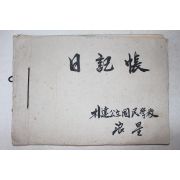 日記帳
朴達公立國民學校